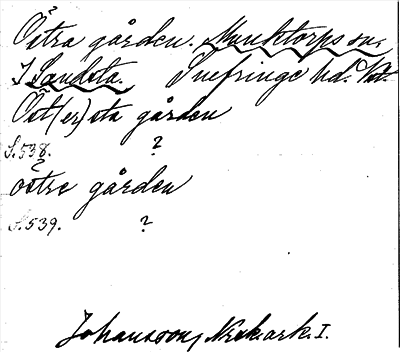 Östra gården. Munktorps sn,
I Sandsta. Snefringe hd. Vstm.
Öst(er)sta gården
S. 538. ?
östre gården
S. 539. ?
Johansson, Noraskog. ark. I.